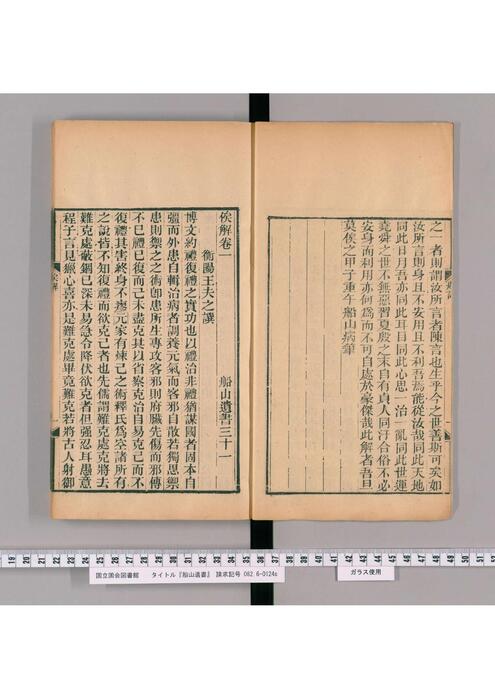 之一者則謂汝所言者陳言也生乎今之世善斯可矣如
汝所言則身且不安用且不利吾焉能從汝哉同此天地
同此日月吾亦同此耳目同此心思一治一亂同此世運
堯舜之世不無惡習夏殷之末自有貞人同汙合俗不必
安身而利用亦何為而不可自處於豪傑哉此解者吾旦
莫俟之甲子重午船山病筆
俟解卷一
船山遺書三十一
衡陽王夫之譔
博文約禮復禮之實功也以禮治非禮猶謀國者固本自
強而外患自輯治病者調養元氣而客邪自散若獨思禦
患則禦之之術卽患所生專攻客邪則府臟先傷而邪傳
不已禮已復而己未盡克其以省察克治自易克己而不
復禮其害終身不瘳元家有煉己之術釋氏為空諸所有
之說皆不知復禮而欲克己者也先儒謂難克處克將去
難克處蔽錮已深未易急令降伏欲克者但強忍耳愚意
程子言見獵心喜亦是難克處畢竟難克若將古人射御
俟解
国立国会図書館 タイトル『船山遺書』 請求記号 082.6-O124s
ガラス使用
19 20 21 22 23 24 25 26 27 28 29 30 31 32 33 34 35 36 37
42 43 44 45 46 47 48 49 50 51 52